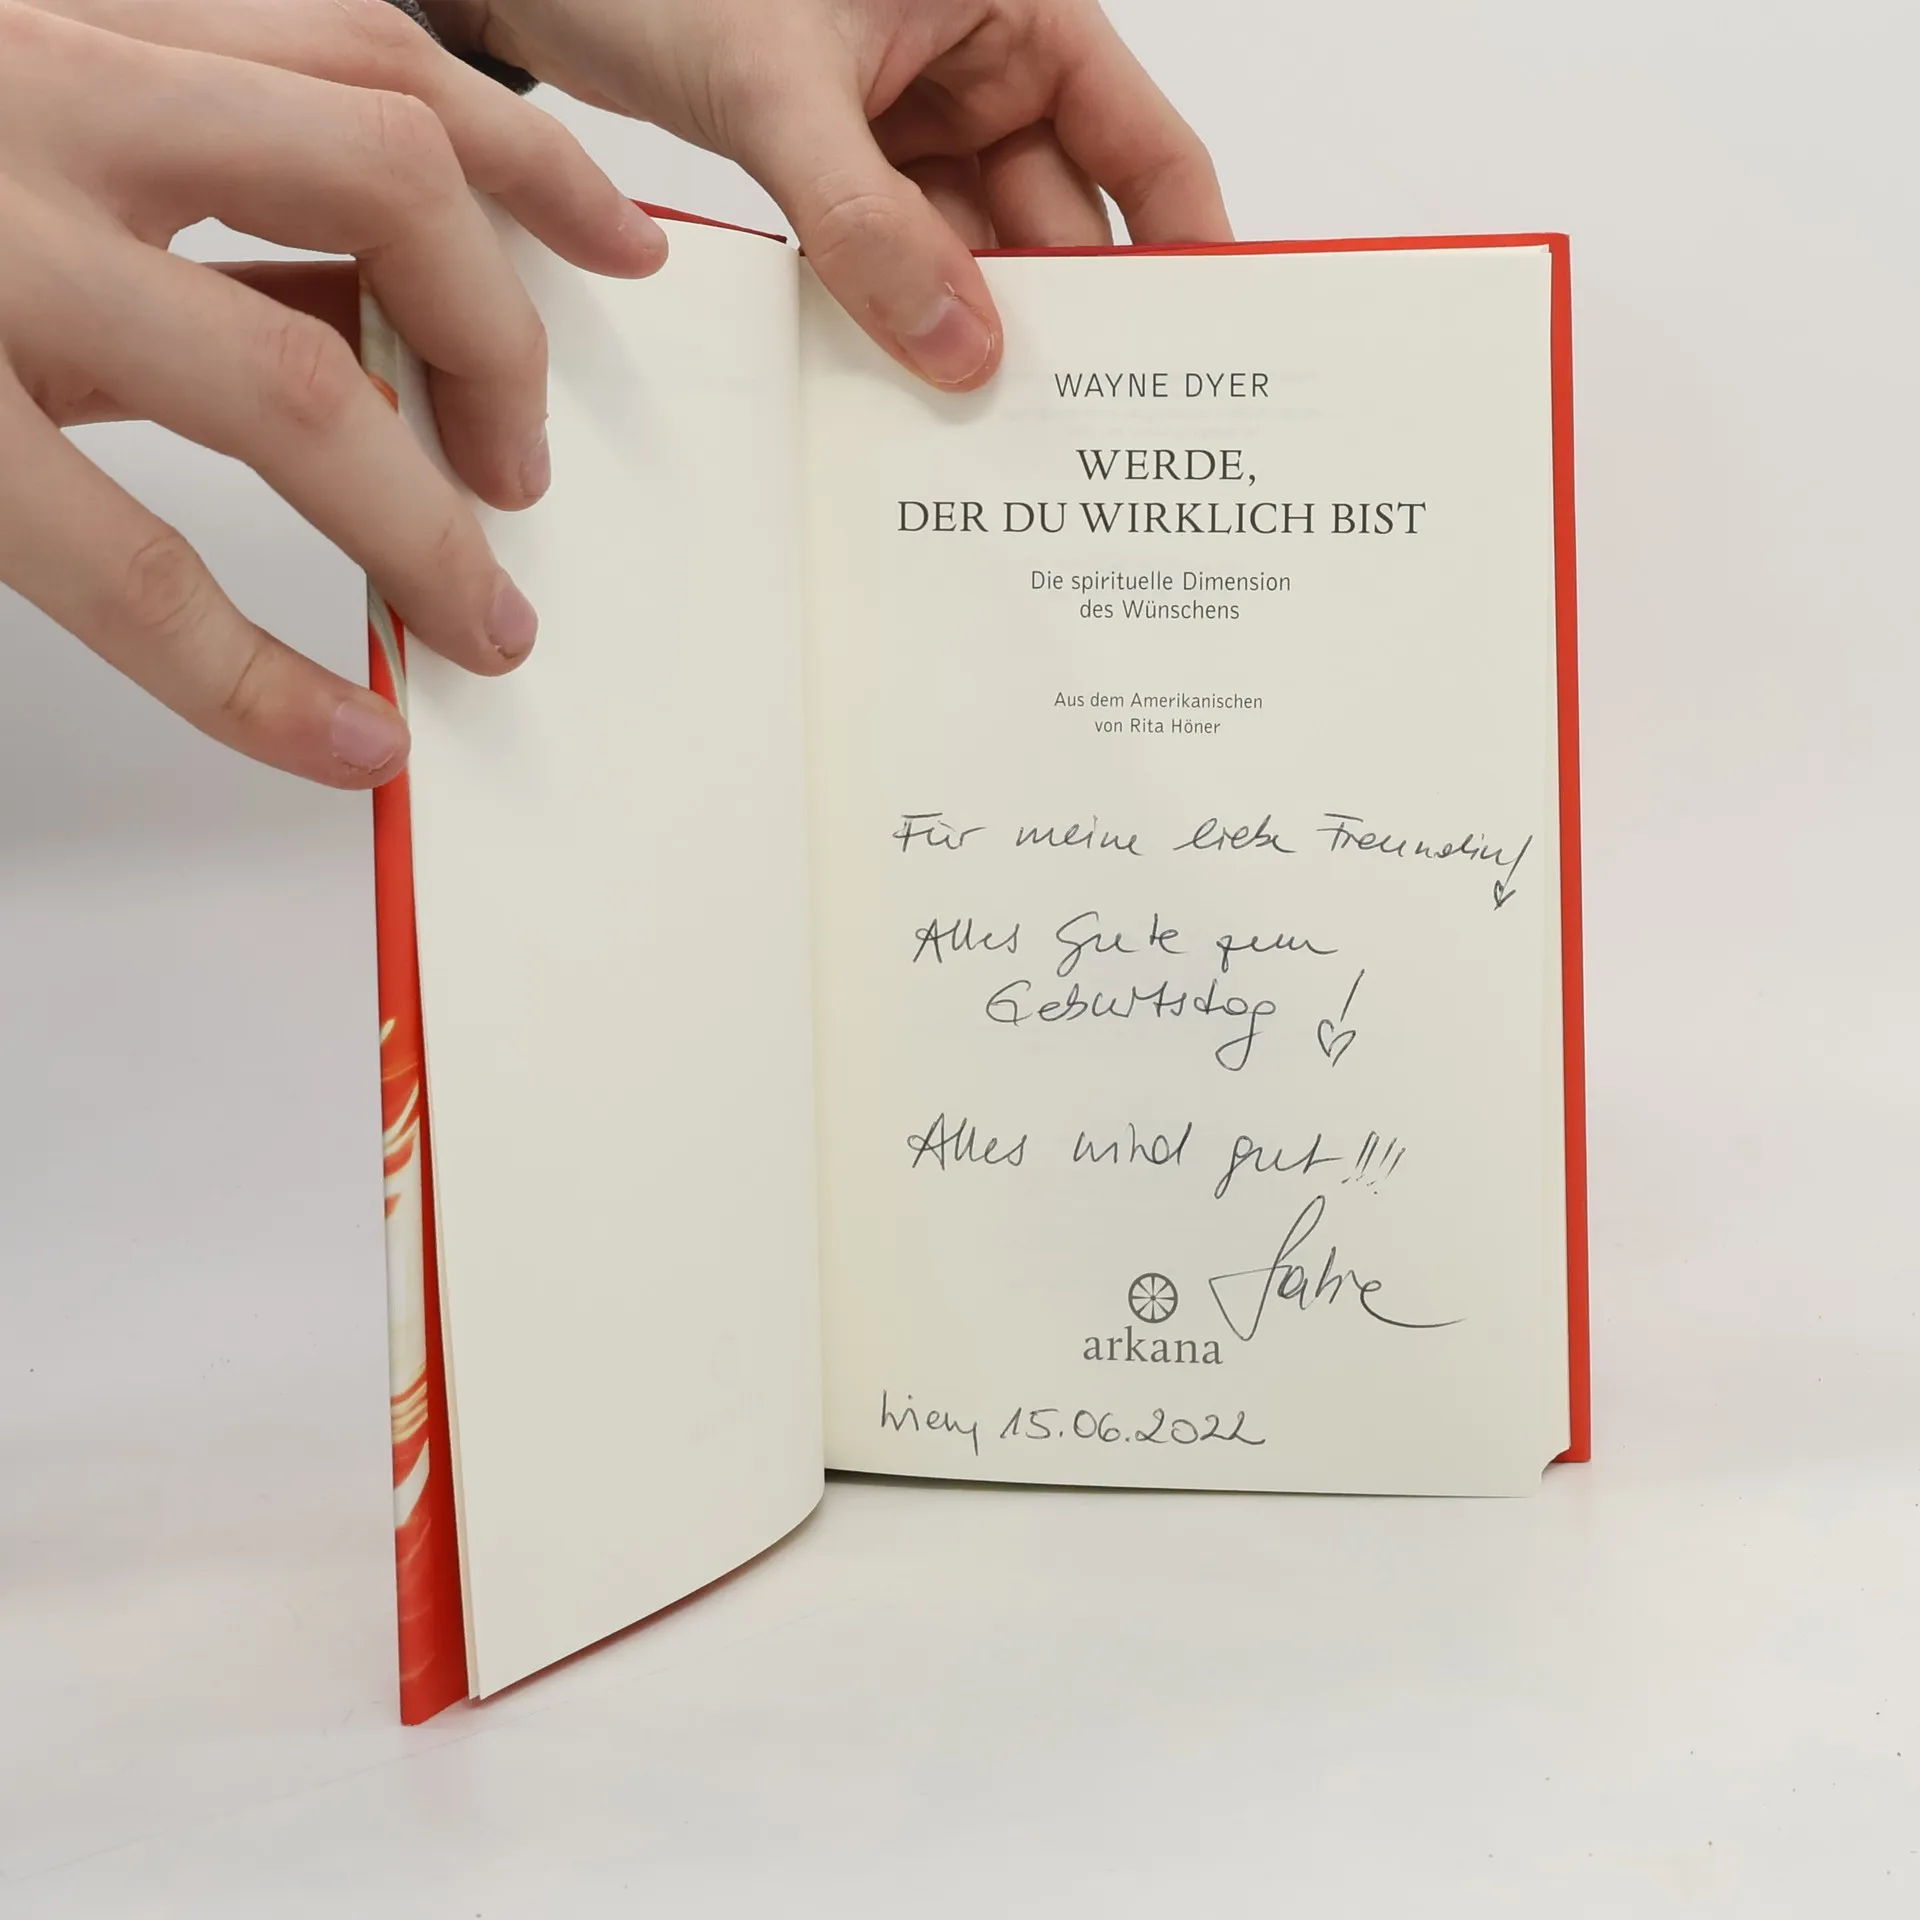 WAYNE DYER
WERDE,
DER DU WIRKLICH BIST
Die spirituelle Dimension
des Wünschens
Aus dem Amerikanischen
von Rita Höner
Für meine liebe Freundin!
Alles Gute zum
Geburtstag!
Alles wird gut!!!!
arkana
Wien, 15.06.2022